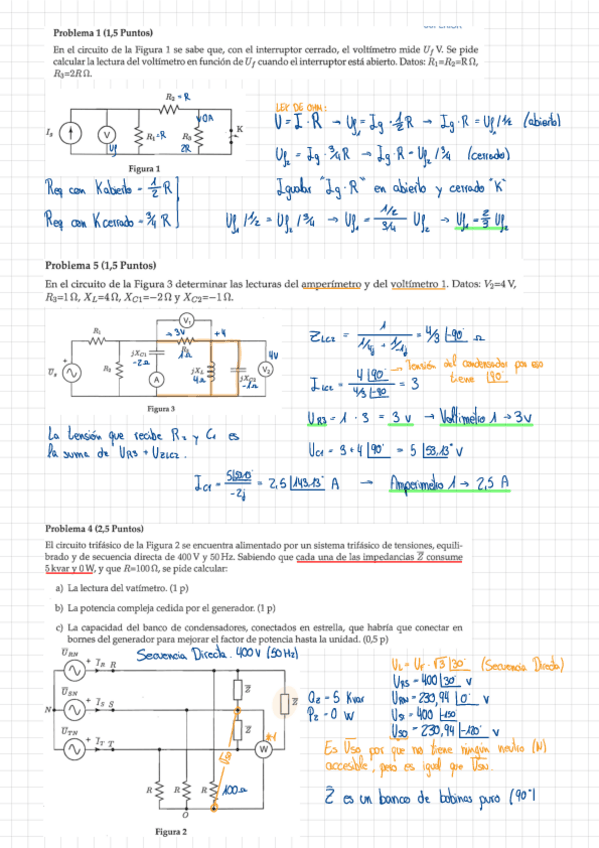 Problema 1 (1,5 Puntos)
En el circuito de la Figura 1 se sabe que, con el interruptor cerrado, el voltímetro mide U_f V. Se pide
calcular la lectura del voltímetro en función de U_f cuando el interruptor está abierto. Datos: R₁=R₂=R Ω,
R₃=2R Ω.
R₂ = R
0A
K
I_s
V
R₁=R
R₃
2R
Uf
Figura 1
LEY DE OHM:
U = I · R → Uf₁ = Ig · 1/2 R → Ig · R = Uf₁ / 1/2 (abierto)
Uf₂ = Ig · 3/4 R → Ig · R = Uf₂ / 3/4 (cerrado)
Req con K abierto = 1/2 R
Req con K cerrado = 3/4 R
Igualar "Ig · R" en abierto y cerrado "K"
Uf₁ / 1/2 = Uf₂ / 3/4 → Uf₁ = 1/2 / 3/4 Uf₂ → Uf₁ = 2/3 Uf₂
Problema 5 (1,5 Puntos)
En el circuito de la Figura 3 determinar las lecturas del amperímetro y del voltímetro 1. Datos: V₂=4 V,
R₃=1 Ω, X_L=4 Ω, X_C1=−2 Ω y X_C2=−1 Ω.
V₁
→ 3V
+4
R₁
jX_C1
-2Ω
1Ω
4V
R₂
U_s
A
jX_L
4Ω
jX_C2
-1Ω
V₂
Figura 3
Z_LC2 = 1 / (1/4j + 1/-1j) = 4/3 |-90° Ω
I_LC2 = 4|90° / 4/3 |-90 = 3
→ Tensión del condensador por eso
tiene |90°
U_R3 = 1 · 3 = 3 V → Voltímetro 1 → 3V
U_C1 = 3 + 4 |90° = 5 |53,13° V
La tensión que recibe R₂ y C₁ es
la suma de U_R3 + U_ZLC2.
-2j = 2,5 |143,13° A → Amperímetro 1 → 2,5 A
Problema 4 (2,5 Puntos)
El circuito trifásico de la Figura 2 se encuentra alimentado por un sistema trifásico de tensiones, equili-
brado y de secuencia directa de 400 V y 50 Hz. Sabiendo que cada una de las impedancias Z̄ consume
5 kvar y 0 W, y que R=100 Ω, se pide calcular:
a) La lectura del vatímetro. (1 p)
b) La potencia compleja cedida por el generador. (1 p)
c) La capacidad del banco de condensadores, conectados en estrella, que habría que conectar en
bornes del generador para mejorar el factor de potencia hasta la unidad. (0,5 p)
Secuencia Directa. 400V (50Hz)
U_RN
+ I_R R
U_SN
N
+ I_S S
U_TN
+ I_T T
Z̄
Z̄
Z̄
W
U_SO
R
R
R
100Ω
O
Figura 2
Qz = 5 Kvar
Pz = 0 W
U_L = U_F · √3 |30° (Secuencia Directa)
U_RS = 400 |30° V
U_RN = 230,94 |0° V
U_SO = 230,94 |-120° V
Es U_SO por que no tiene ningun neutro (N)
accesible, pero es igual que U_SN.
Z̄ es un banco de bobinas puro (90°)